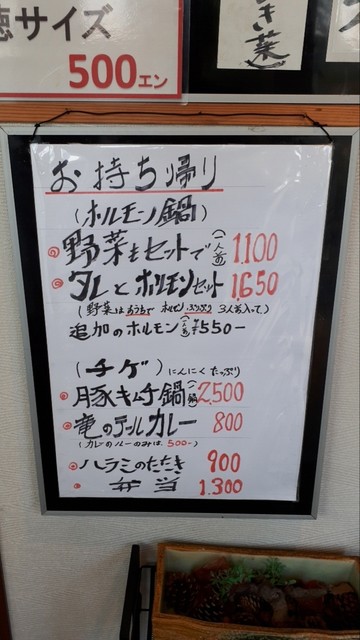 徳サイズ
500エン
き菜
お持ち帰り
(ホルモン鍋)
野菜もセットで(一人前) 1.100
タレとホルモンセット 1.650
(野菜はおうちで ホルモンぷりぷり 3人前入って。)
追加のホルモン(一人前)¥550-
(チゲ)にんにくたっぷり
豚キムチ鍋 2,500
竜のテールカレー 800
(カレーのルーのみは、500-)
ハラミのたたき 900
弁当 1.300